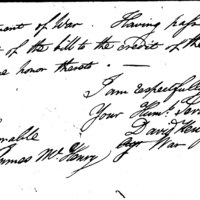 ment of War. Having pass
t of the bill to the credit of the
e honor thereto. —
I am respectfully
Your Humb. Ser
David Hen
Agt War
nable
James McHenry